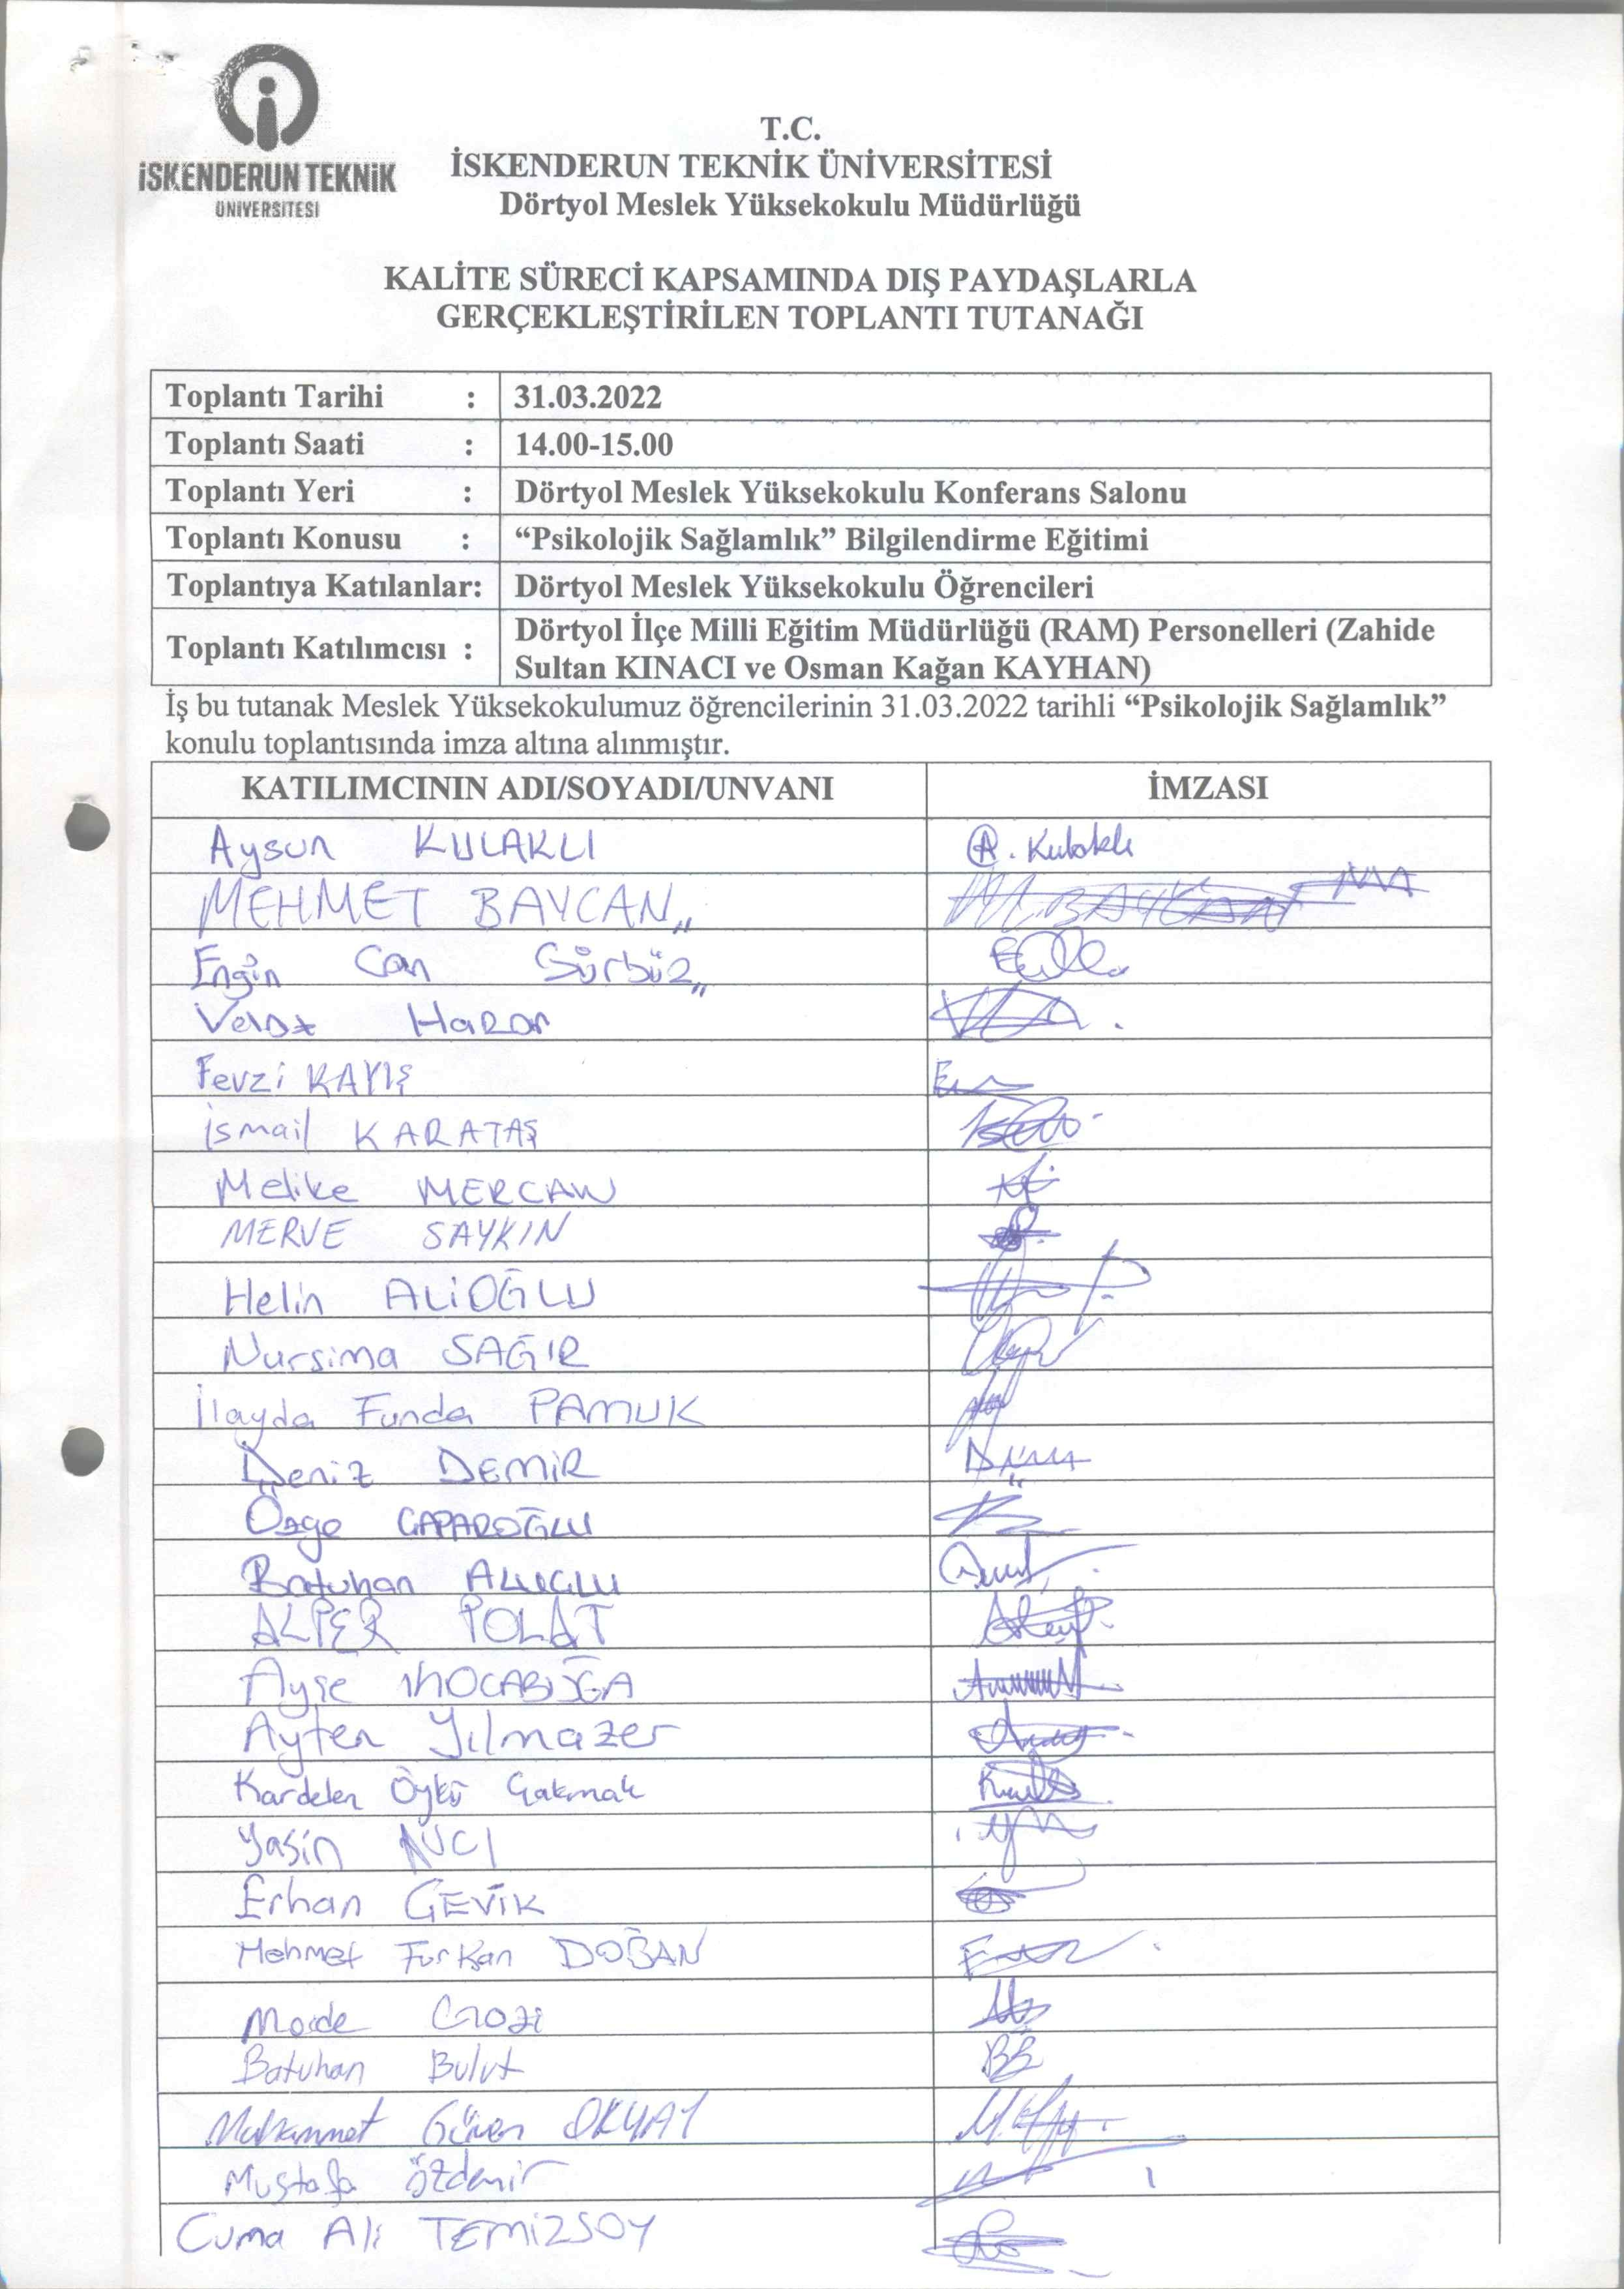 İSKENDERUN TEKNİK
ÜNİVERSİTESİ
T.C.
İSKENDERUN TEKNİK ÜNİVERSİTESİ
Dörtyol Meslek Yüksekokulu Müdürlüğü
KALİTE SÜRECİ KAPSAMINDA DIŞ PAYDAŞLARLA
GERÇEKLEŞTİRİLEN TOPLANTI TUTANAĞI
Toplantı Tarihi : 31.03.2022
Toplantı Saati : 14.00-15.00
Toplantı Yeri : Dörtyol Meslek Yüksekokulu Konferans Salonu
Toplantı Konusu : “Psikolojik Sağlamlık” Bilgilendirme Eğitimi
Toplantıya Katılanlar: Dörtyol Meslek Yüksekokulu Öğrencileri
Toplantı Katılımcısı : Dörtyol İlçe Milli Eğitim Müdürlüğü (RAM) Personelleri (Zahide
Sultan KINACI ve Osman Kağan KAYHAN)
İş bu tutanak Meslek Yüksekokulumuz öğrencilerinin 31.03.2022 tarihli “Psikolojik Sağlamlık”
konulu toplantısında imza altına alınmıştır.
KATILIMCININ ADI/SOYADI/UNVANI İMZASI
Aysun KULAKLI A. Kulaklı
MEHMET BAYCAN
Engin Can Gürbüz
Fevzi KAYIŞ
İsmail KARATAŞ
Melike MERCAN
MERVE SAYKIN
Helin ALİOĞLU
Nursima SAĞIR
İlayda Funda PAMUK
Deniz DEMİR
Özge
Batuhan
ALPER POLAT
Ayşe
Ayten Yılmazer
Kardelen Öykü Çakmak
Yasin AVCI
Erhan ÇEVİK
Mehmet Furkan DOĞAN
Batuhan Bulut BB
Muhammet Güven OKYAY
Mustafa Özdemir
Cuma Ali TEMİZSOY